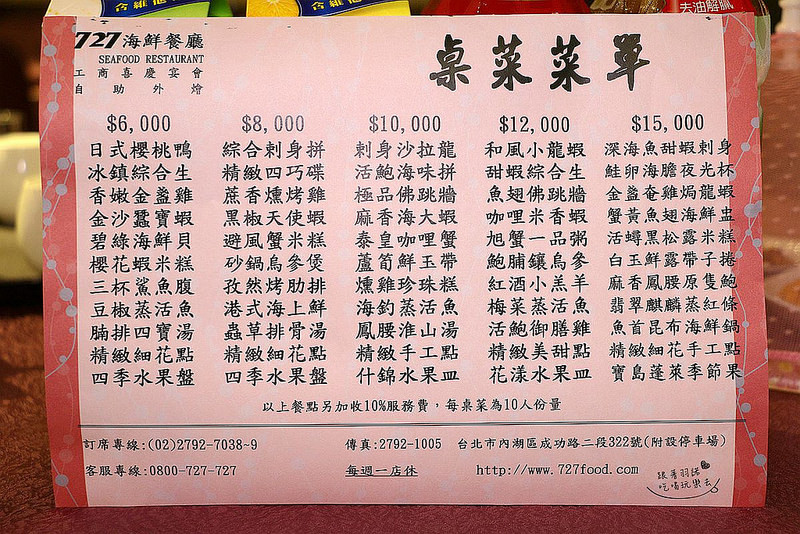 去油解膩
727海鮮餐廳
SEAFOOD RESTAURANT
工商喜慶宴會
自助外燴
桌菜菜單
$6,000
日式櫻桃鴨
冰鎮綜合生
香嫩金盞雞
金沙蠶寶蝦
碧綠海鮮貝
櫻花蝦米糕
三杯鯊魚腹
豆椒蒸活魚
腩排四寶湯
精緻細花點
四季水果盤
$8,000
綜合刺身拼
精緻四巧碟
蔗香燻烤雞
黑椒天使蝦
避風蟹米糕
砂鍋烏參煲
孜然烤肋排
港式海上鮮
蟲草排骨湯
精緻細花點
四季水果盤
$10,000
刺身沙拉龍
活鮑海味拼
極品佛跳牆
麻香海大蝦
泰皇咖哩蟹
蘆筍鮮玉帶
燻雞珍珠糕
海釣蒸活魚
鳳腰淮山湯
精緻手工點
什錦水果皿
$12,000
和風小龍蝦
甜蝦綜合生
魚翅佛跳牆
咖哩米香蝦
旭蟹一品粥
鮑脯鑲烏參
紅酒小羔羊
梅菜蒸活魚
活鮑御膳雞
精緻美甜點
花漾水果皿
$15,000
深海魚甜蝦刺身
鮭卵海膽夜光杯
金盞奄雞焗龍蝦
蟹黃魚翅海鮮盅
活蟳黑松露米糕
白玉鮮露帶子捲
麻香鳳腰原隻鮑
翡翠麒麟蒸紅條
魚首昆布海鮮鍋
精緻細花手工點
寶島蓬萊季節果
以上餐點另加收10%服務費，每桌菜為10人份量
訂席專線:(02)2792-7038~9
傳真:2792-1005
台北市內湖區成功路二段322號(附設停車場)
客服專線:0800-727-727
每週一店休
http://www.727food.com
跟著羽諾
吃喝玩樂去